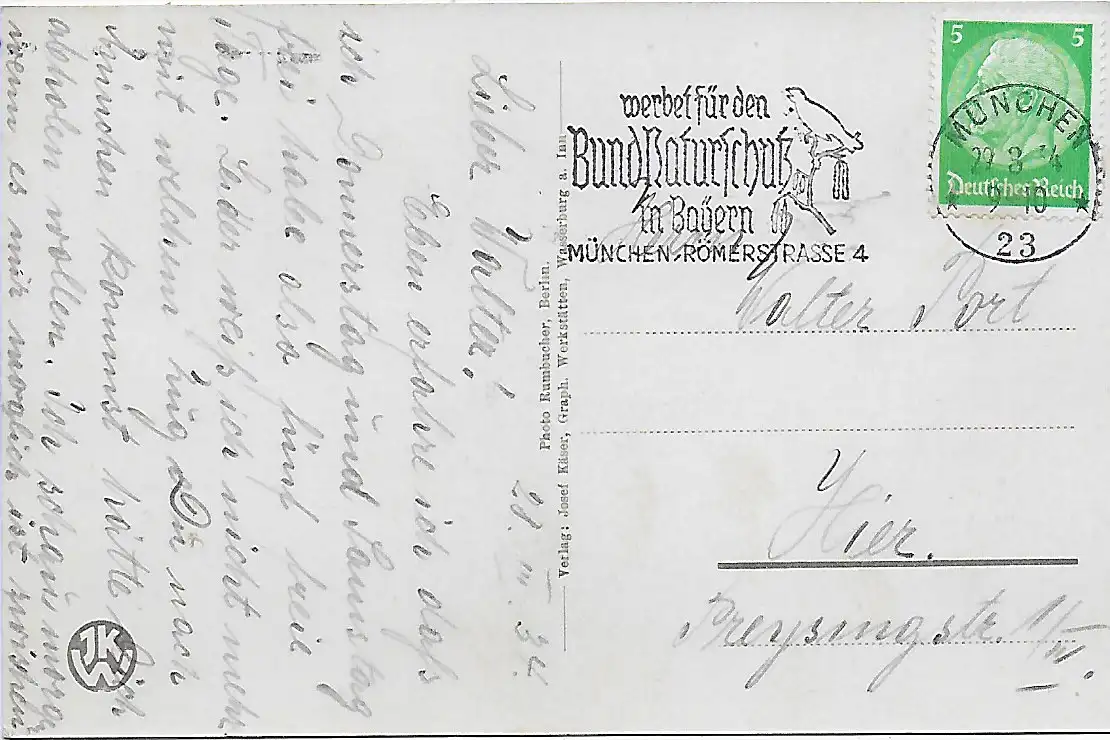 28. III. 34.
Lieber Walter!
Eben erfahre ich daß
ich Donnerstag und Samstag
frei habe also fünf freie
Tage. Leider weiß ich nicht mehr
mit welchem Zug Du nach
München kommst hätte Dich
abholen wollen. Ich schaue
wenn es mir möglich ist
Photo Rumbucher, Berlin.
Verlag: Josef Käser, Graph. Werkstätten, Wasserburg a. Inn
werbet für den
Bund Naturschutz
in Bayern
MÜNCHEN-RÖMERSTRASSE 4
5 5
Deutsches Reich
MÜNCHEN
23
Walter Port
Hier.
Preysingstr.
JKW